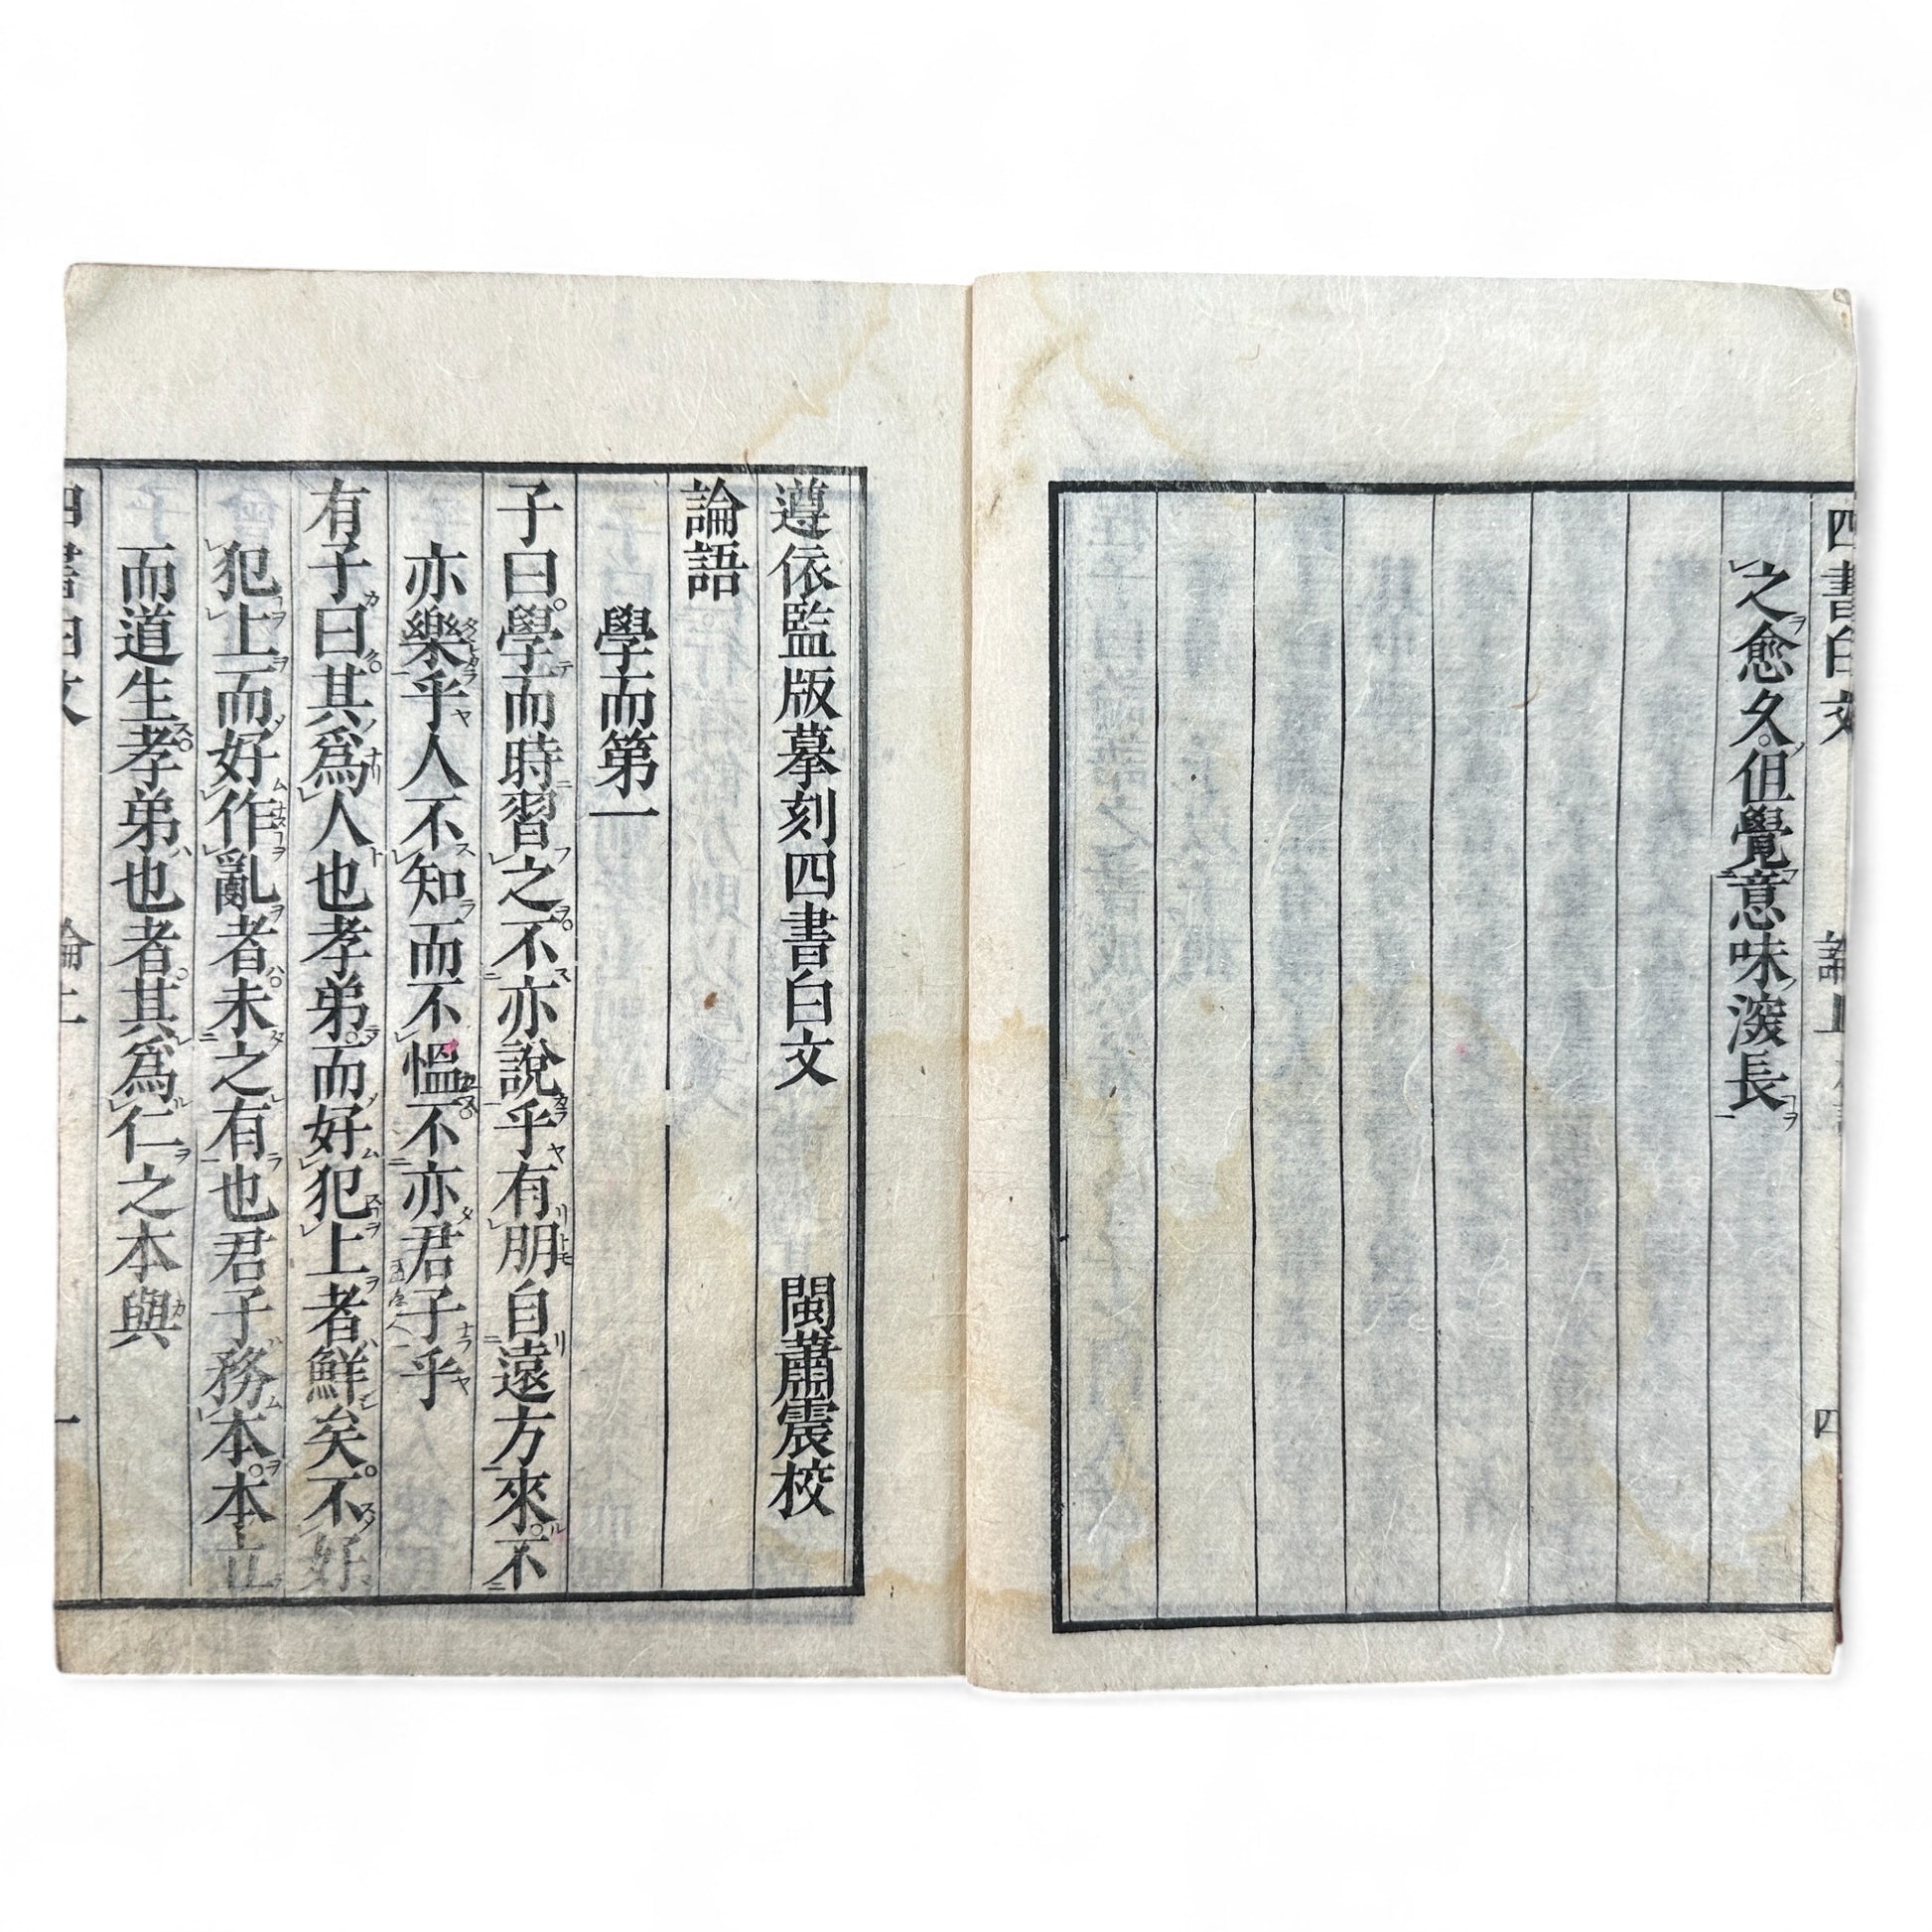 四書白文 論上 四
之愈久但覺意味深長
遵依監版摹刻四書白文 閩蕭震校
論語
學而第一
子曰。學而時習之。不亦說乎有朋自遠方來。不
亦樂乎人不知而不慍。不亦君子乎
有子曰。其爲人也孝弟。而好犯上者鮮矣。不好
犯上而好作亂者。未之有也君子務本。本立
而道生。孝弟也者。其爲仁之本與
四書白文 論上 一